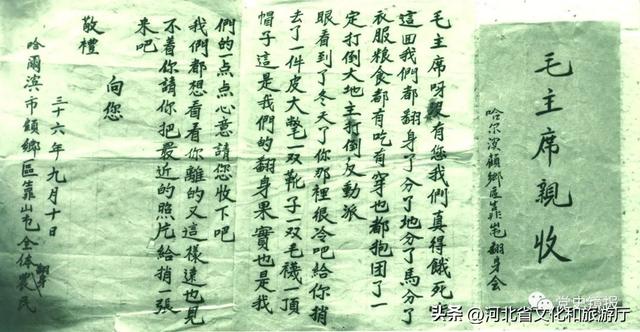 毛主席親收
哈尔滨顧鄉区靠屯翻身会
毛主席呀没有您我們真得餓死
這回我們都翻身了分了地分了馬分了
衣服粮食都有吃有穿也都抱团了一
定打倒大地主打倒反動派
眼看到了冬天了你那裡很冷吧給你捎
去了一件皮大氅一双靴子一双毛襪一頂
帽子這是我們的翻身果實也是我
們的一点点心意請您收下吧
我們都想看看你離的又這樣遠也見
不着你請你把最近的照片給捎一張
來吧
向您
敬禮
三十六年九月十日
哈爾濱市顧鄉區靠山屯全体翻身農民
党史镜报
头条 @河北省文化和旅游厅